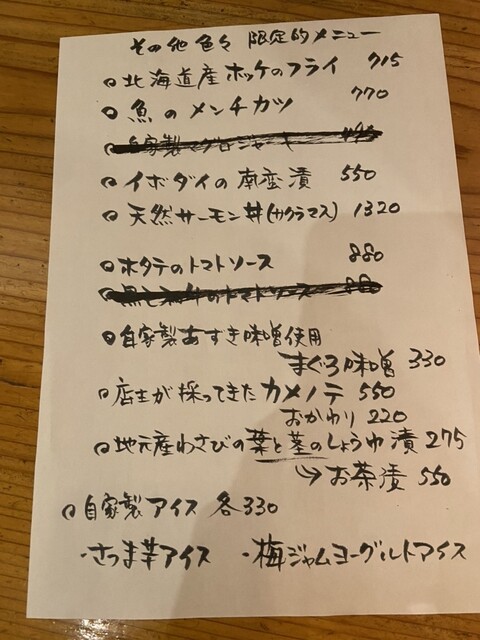 その他色々 限定的メニュー
北海道産ホッケのフライ 715
魚のメンチカツ 770
自家製マグロジャーキー
イボダイの南蛮漬 550
天然サーモン丼(サクラマス) 1320
ホタテのトマトソース 880
のトマトソース 880
自家製あずき味噌使用
まぐろ味噌 330
店主が採ってきたカメノテ 550
おかわり 220
地元産わさびの葉と茎のしょうゆ漬 275
→お茶漬 550
自家製アイス 各330
・さつま芋アイス ・梅ジャムヨーグルトアイス